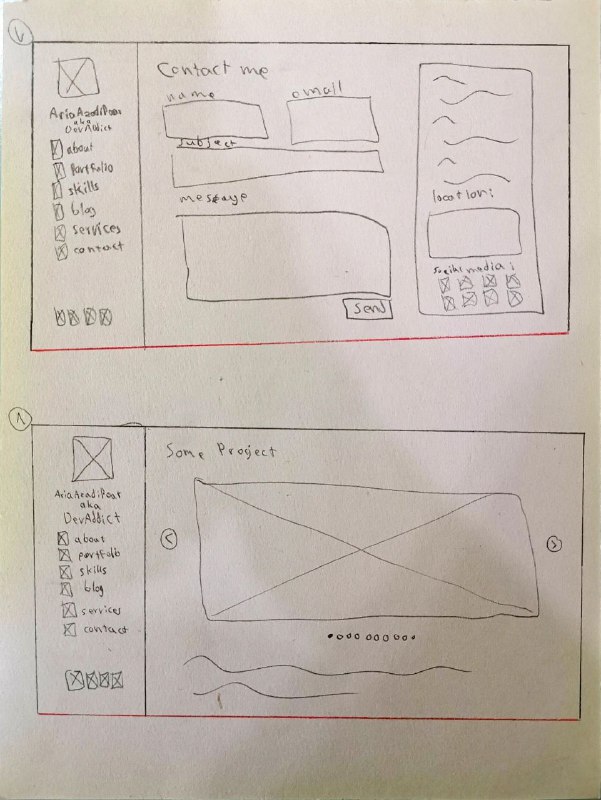 ٧
AriaAzadiPoor
aka
DevAddict
about
portfolio
skills
blog
services
contact
Contact me
name
email
subject
message
Send
location:
social media:
٨
AriaAzadiPoor
aka
DevAddict
about
portfolio
skills
blog
services
contact
Some Project
<
>